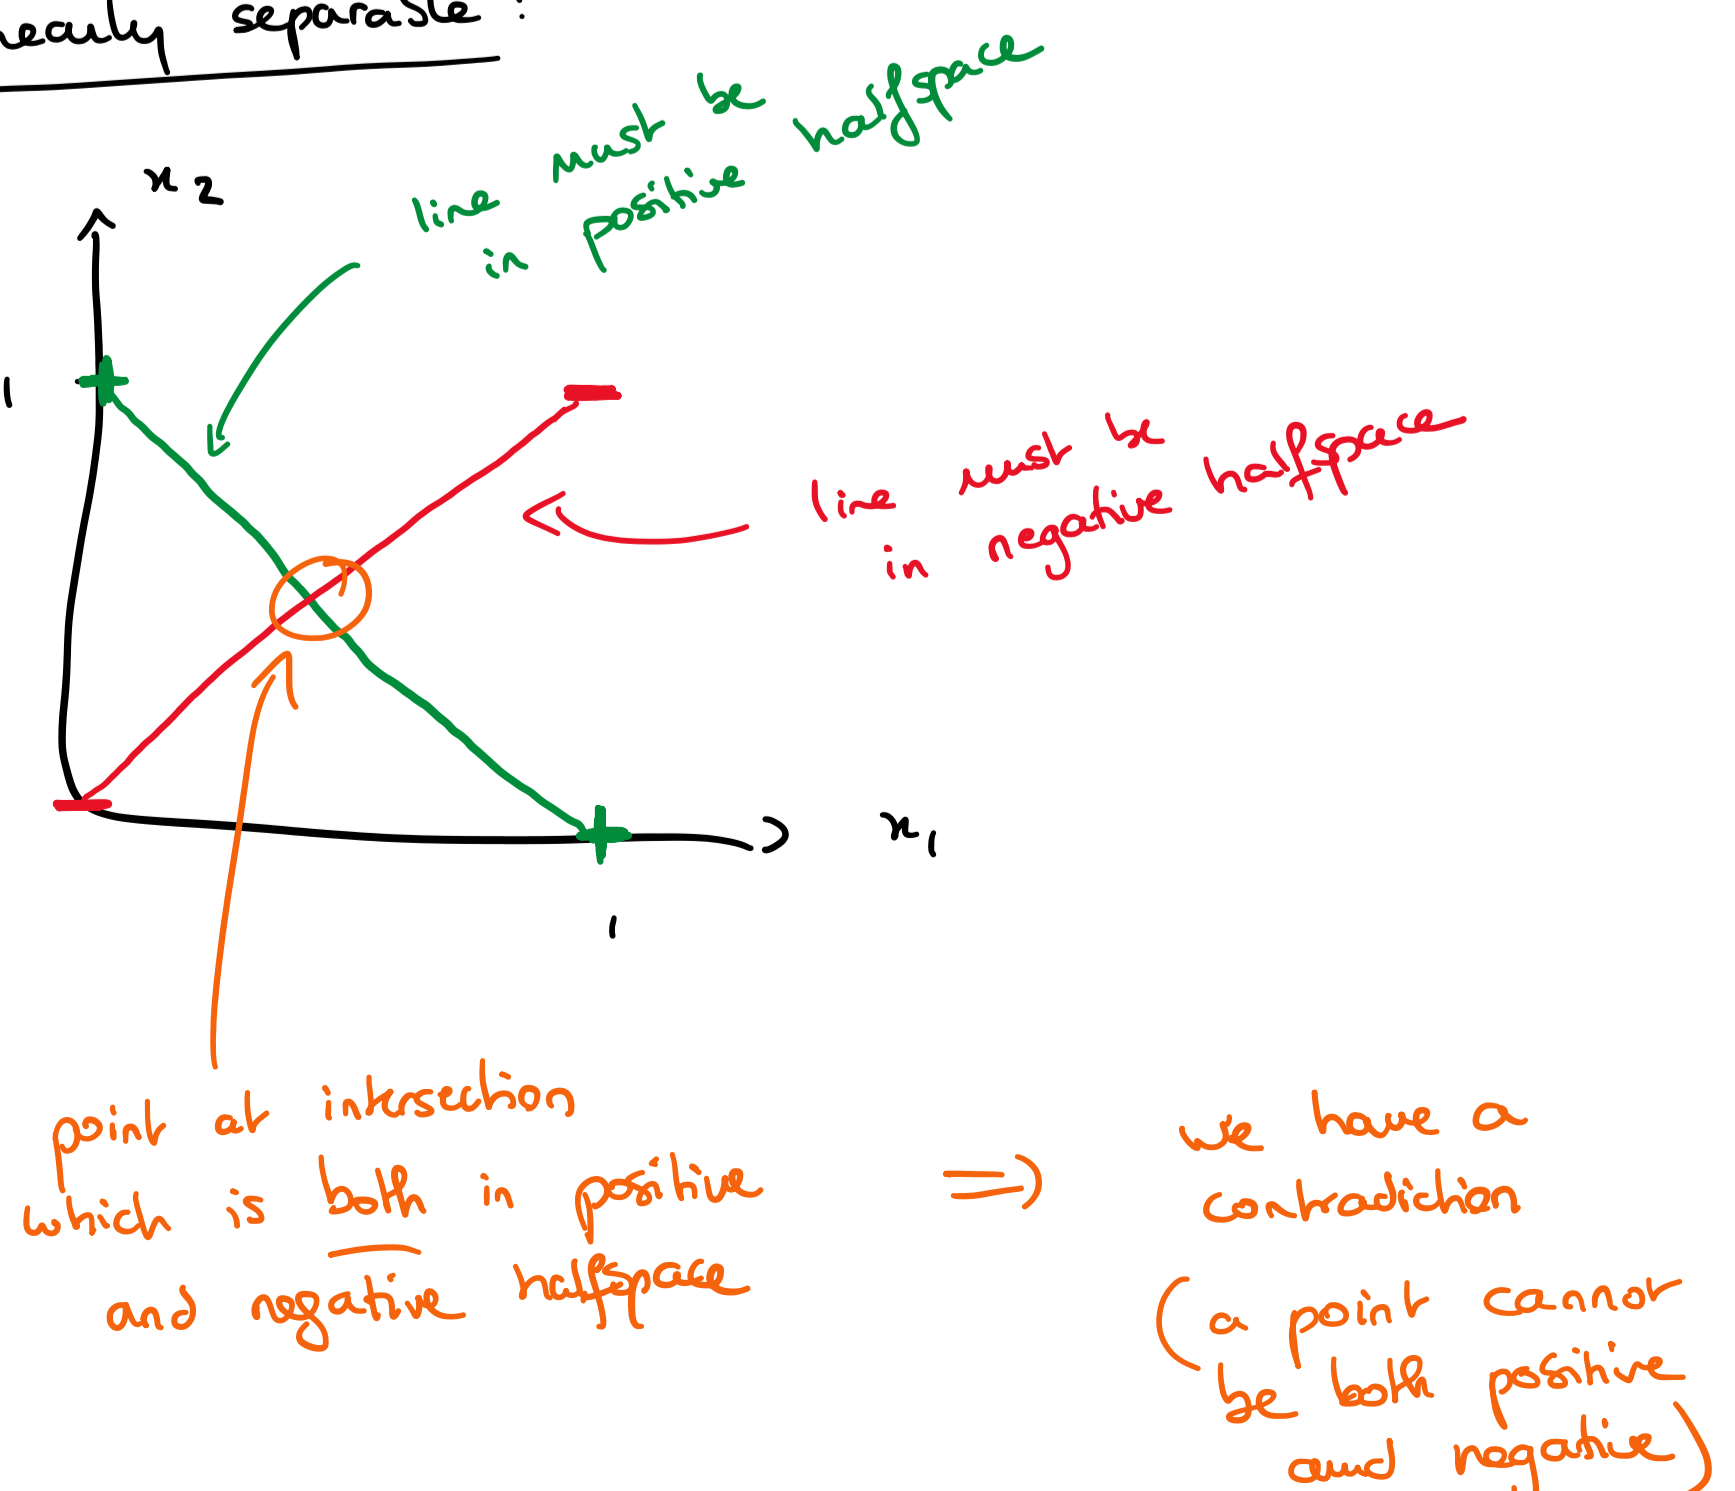 nearly separable?
x2
line must be
in positive halfspace
1
line must be
in negative halfspace
x1
1
point at intersection
which is both in positive
and negative halfspace
=> we have a
contradiction
(a point cannot
be both positive
and negative)